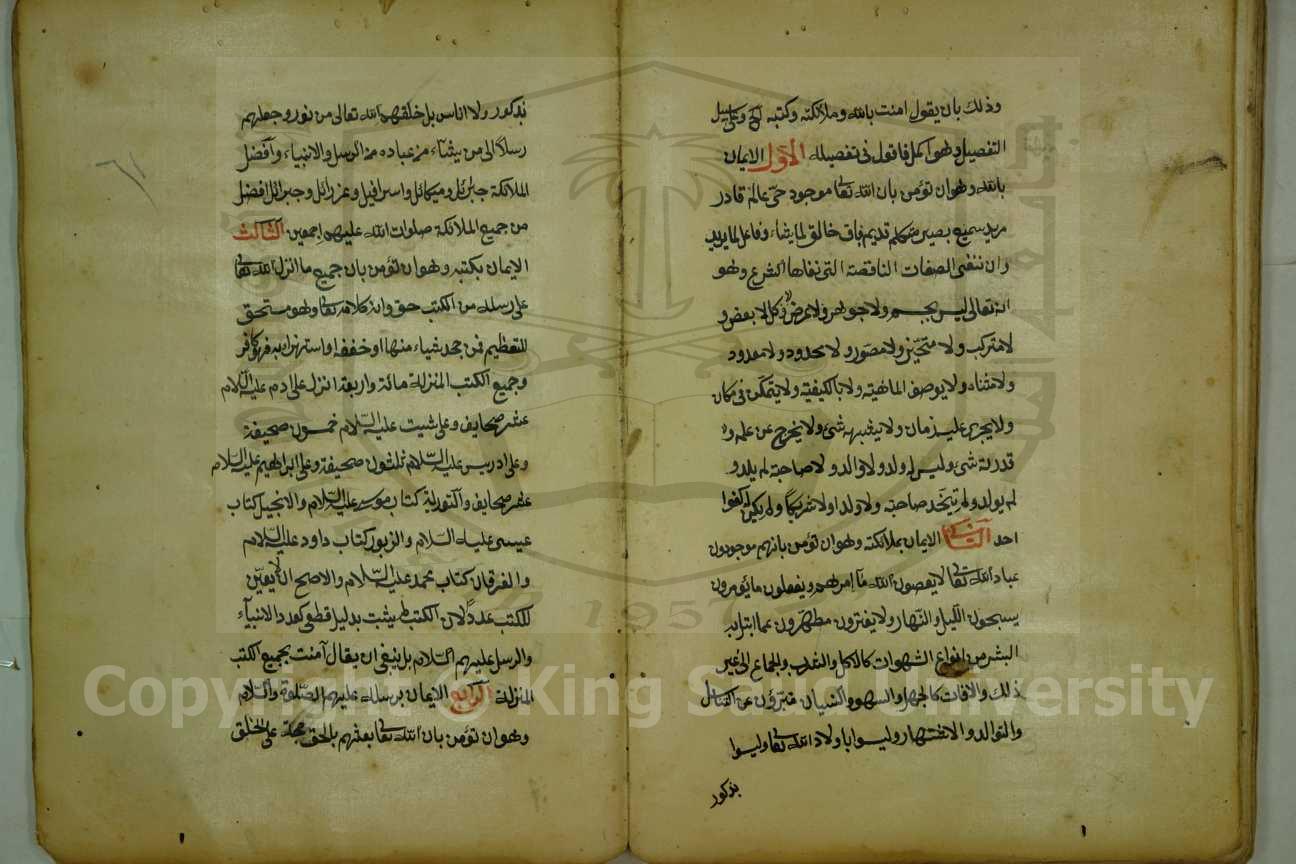 وذلك بان يقول امنت بالله وملائكته وكتبه الخ وعلى سبيل
التفصيل وهو اكمل فاقول في تفصيله الاول الايمان
بالله وهو ان تؤمن بان الله تعالى موجود حي عالم قادر
مريد سميع بصير متكلم قديم باق خالق لما يشاء وفاعل لما يريد
وان تنفى الصفات الناقصة التى نفاها الشرع وهو
انه تعالى ليس بجسم ولا جوهر ولا عرض ولا كل ولا بعض و
لا مركب ولا متحيز ولا مصور ولا محدود ولا معدود
ولا متناه ولا يوصف الماهية ولا بالكيفية ولا يتمكن في مكان
ولا يجرى عليه زمان ولا يشبهه شئ ولا يخرج عن علمه و
قدرته شئ وليس له ولد ولا والد ولا صاحبة لم يلد و
لم يولد ولم يتخذ صاحبة ولا ولدا ولا شريكا ولم يكن له كفوا
احد الثاني الايمان بملائكته وهو ان تؤمن بانهم موجودون
عباد الله تعالى لا يعصون الله ما امرهم ويفعلون ما يؤمرون
يسبحون الليل والنهار ولا يفترون مطهرون عما ابتلى به
البشر من انواع الشهوات كالاكل والشرب والجماع الى غير
ذلك والافات كالجهل والسهو والنسيان مبرؤن عن التناسل
والتوالد والاشتهار وليسوا باولاد الله تعالى وليسوا
بذكور
بذكور ولا اناس بل خلقهم الله تعالى من نور وجعلهم
رسلا الى من يشاء من عباده من الرسل والانبياء وافضل
الملائكة جبرائل وميكائل واسرافيل وعزرائل وجبرائل افضل
من جميع الملائكة صلوات الله عليهم اجمعين الثالث
الايمان بكتبه وهو ان تؤمن بان جميع ما انزل الله تعالى
على رسله من الكتب حق وانه كلامه تعالى وهو مستحق
للتعظيم فمن جحد شياء منها او خففه او استهزاء به فهو كافر
وجميع الكتب المنزلة مائة واربعة انزل على ادم عليه السلام
عشر صحايف وعلى شيت عليه السلام خمسون صحيفة
وعلى ادريس عليه السلام ثلثون صحيفة وعلى ابراهيم عليه السلام
عشر صحايف والتورية كتاب موسى عليه السلام والانجيل كتاب
عيسى عليه السلام والزبور كتاب داود عليه السلام
والفرقان كتاب محمد عليه السلام والاصح ان لا يعين
للكتب عدد لان الكتب لم يثبت بدليل قطعي كعدد الانبياء
والرسل عليهم السلام بل ينبغى ان يقال آمنت بجميع الكتب
المنزلة الرابع الايمان برسله عليهم الصلوة والسلام
وهو ان تؤمن بان الله تعالى بعثهم بالحق حجة على الخلق
1957
Copyright © King Saud University